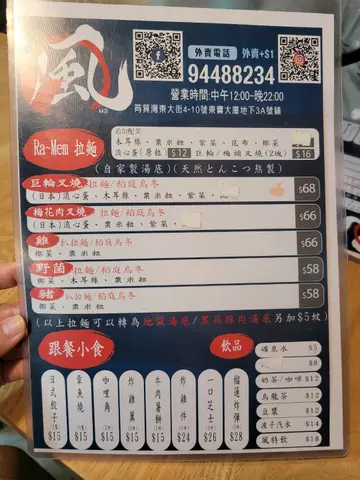 風
外賣電話 外賣+$1
94488234
營業時間:中午12:00-晚22:00
筲箕灣東大街4-10號東寶大廈地下3A號舖
Ra-Mem 拉麵
追加配菜
木耳絲、粟米粒、紫菜、昆布、椰菜
流心蛋(原隻) $12 巨輪/梅頭叉燒(2塊) $16
(自家製湯底)(天然とんこつ熬製)
巨輪叉燒 拉麵/稻庭烏冬 $68
(日本)流心蛋、木耳絲、粟米粒、紫菜
梅花肉叉燒 拉麵/稻庭烏冬 $66
(日本)流心蛋、粟米粒、紫菜
雞扒拉麵/稻庭烏冬 $66
椰菜、粟米粒
野菌 拉麵/稻庭烏冬 $58
椰菜、木耳絲、粟米粒
豬扒拉麵/稻庭烏冬 $58
椰菜、粟米粒
(以上拉麵可以轉為地獄湯底/黑蒜豚肉湯底另加$5蚊)
跟餐小食
日式餃子 $15
章魚燒 $15
咖哩角 $15
炸雞翼 $15
牛肉薯餅 $15
炸雞件 $24
一口芝士 $26
榴蓮炸彈 $28
飲品
礦泉水 $5
$8
奶茶/咖啡 $12
烏龍茶 $12
豆漿 $12
波子汽水 $14
風特飲 $18